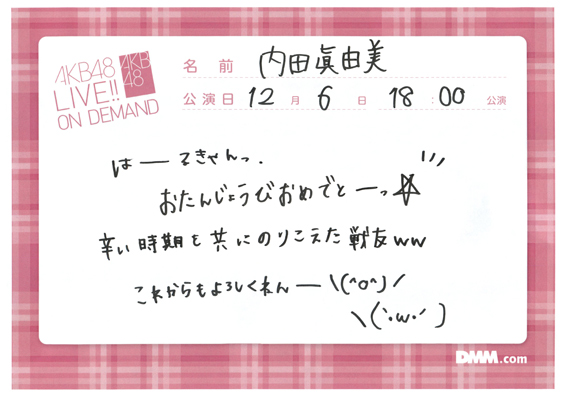 AKB48
LIVE!!
ON DEMAND
AKB
48
名前 内田眞由美
公演日 12月6日 18:00公演
はーるきゃんっ.
おたんじょうびおめでとーっ☆
辛い時期を共にのりこえた戦友ww
これからもよろしくれんー\(^o^)/
\(`・ω・´)
DMM.com